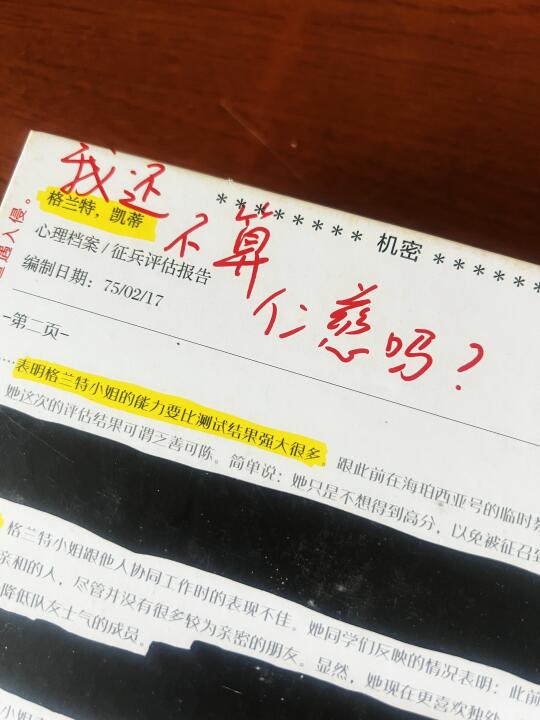 我还不算仁慈吗?
遭遇入侵。
格兰特，凯蒂
******** 机密 ******
心理档案/征兵评估报告
编制日期：75/02/17
-第二页-
……表明格兰特小姐的能力要比测试结果强大很多，跟此前在海珀西亚号的临时
她这次的评估结果可谓乏善可陈。简单说：她只是不想得到高分，以免被征召
格兰特小姐跟他人协同工作时的表现不佳。她同学们反映的情况表明：此前
亲和的人，尽管并没有很多较为亲密的朋友。显然，她现在更喜欢独处
降低队友士气的成员。